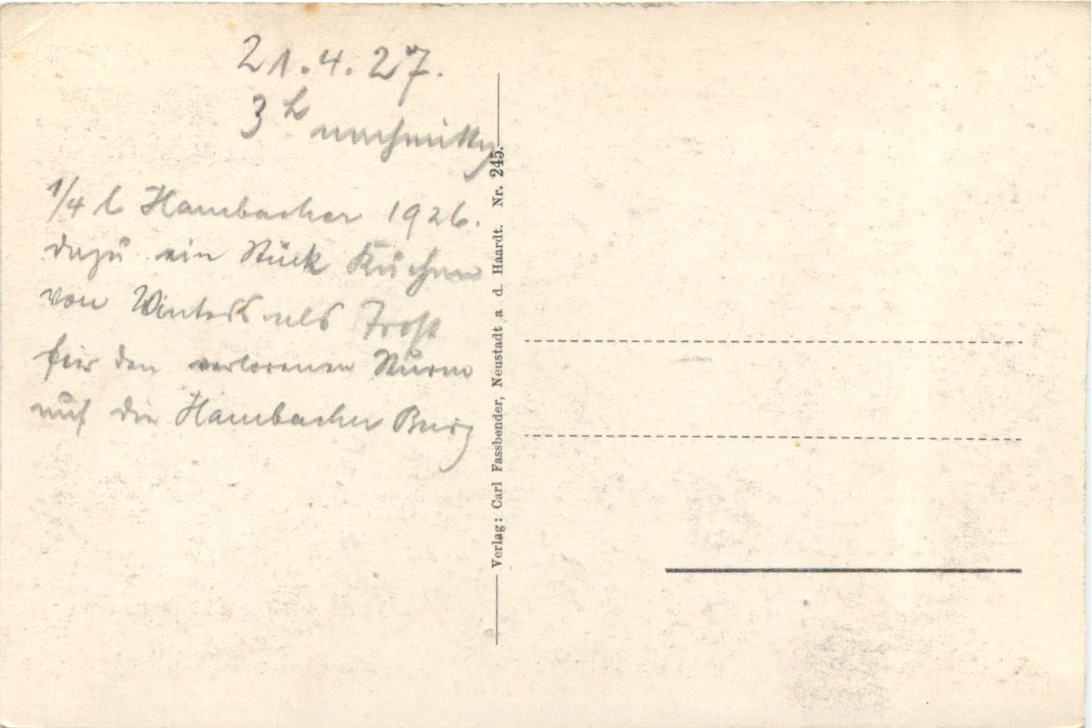 21.4.27.
3h nachmittg
1/4 l Hambacher 1926.
dazu ein Stück Kuchen
von Winters als Trost
für den verlorenen Sturm
auf die Hambacher Burg
Verlag: Carl Fassbender, Neustadt a d. Haardt. Nr. 245.